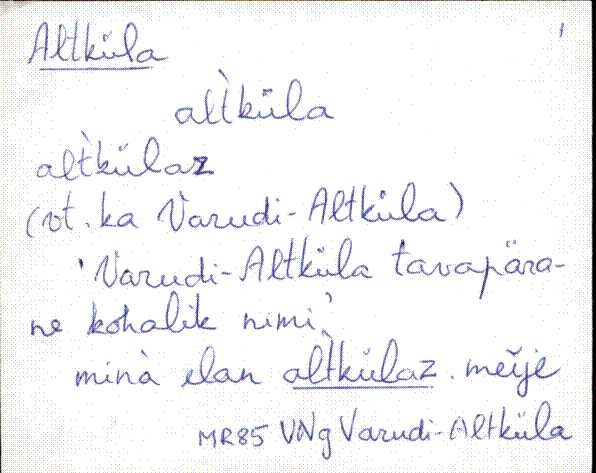 Altküla 1
alt̀küla
alt̀külaz
(vt. ka Varudi-Altküla)
'Varudi-Altküla tavapära-
ne kohalik nimi.'
minà elan alt̀külaz. meije
MR85 VNg Varudi-Altküla